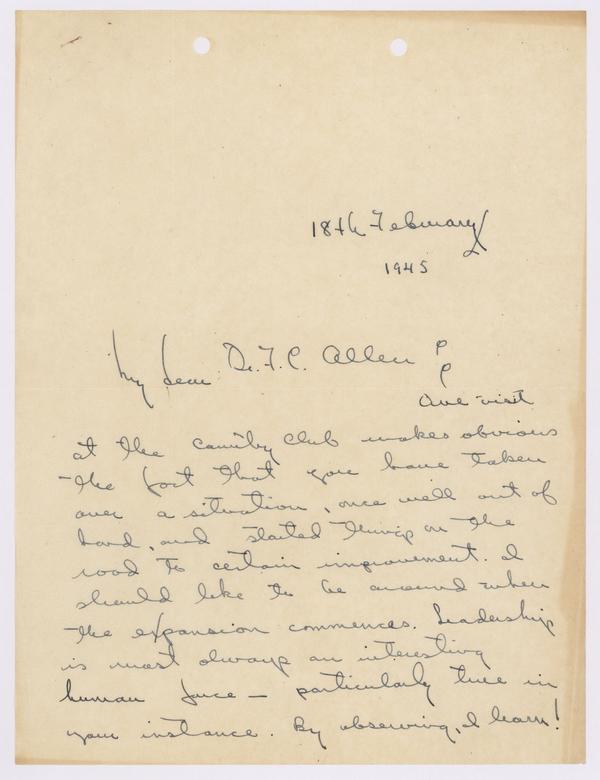 18th February
1945
My dear Dr. F. C. Allen
One visit
at the country club makes obvious
the fact that you have taken
over a situation, once well out of
hand, and started things on the
road to certain improvement. I
should like to be around when
the expansion commences. Leadership
is most always an interesting
human force — particularly true in
your instance. By observing, I learn!